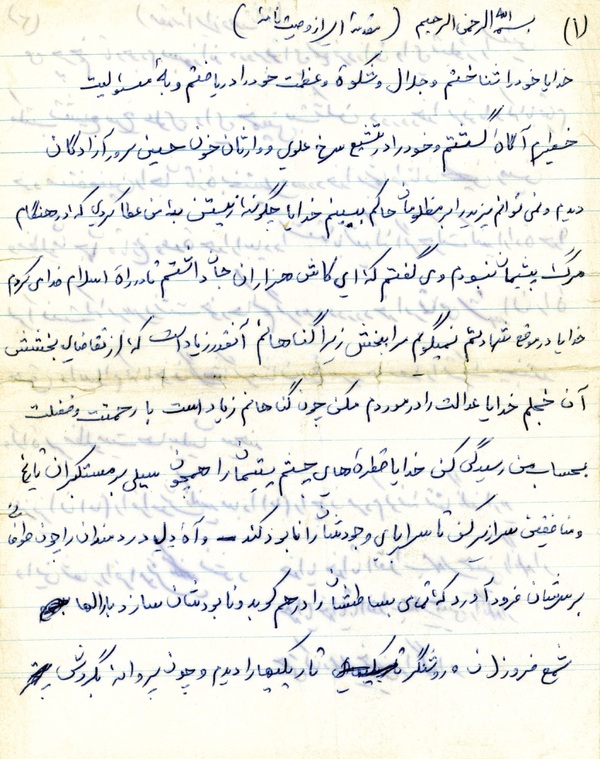 (۱) بسم الله الرحمن الرحیم (مقدمهٔ از وصیت نامهٔ)
خدایا خود را شناختم و جلال و شکوه و عظمت خود را دریافتم و به مسئولیت
خطیرم آگاه گشتم و خود را در تشیع سرخ علوی و وارثان خون حسین سرور آزادگان
دیدم و نمی توانم یزید را بر مظلومان حاکم ببینم خدایا چگونه زیستن به من عطا کردی که در هنگام
مرگ پشیمان نبودم و می گفتم که ای کاش هزاران جان داشتم تا در راه اسلام فدا می کردم
خدایا در موقع شهادتم نمیگویم مرا ببخش زیرا گناهانم آنقدر زیاد است که از تقاضای بخشش
آن خجلم خدایا عدالت را در موردم مکن چون گناهانم زیاد است با رحمتت و فضلت
بحساب من رسیدگی کن خدایا قطره های چشم یتیمان را همچون سیلی بر مستکبران یاغی
و منافقین سرازیر کن تا سراپای وجودشان را نابود کند - و آه دل دردمندان را چون طوفانی
بر سرشان فرود آور که تمامی بساطشان را درهم کوبد و نابودشان سازد بارالها
شمع فروزان و روشنگر تاریکیها را دیدم و چون پروانه بگردش